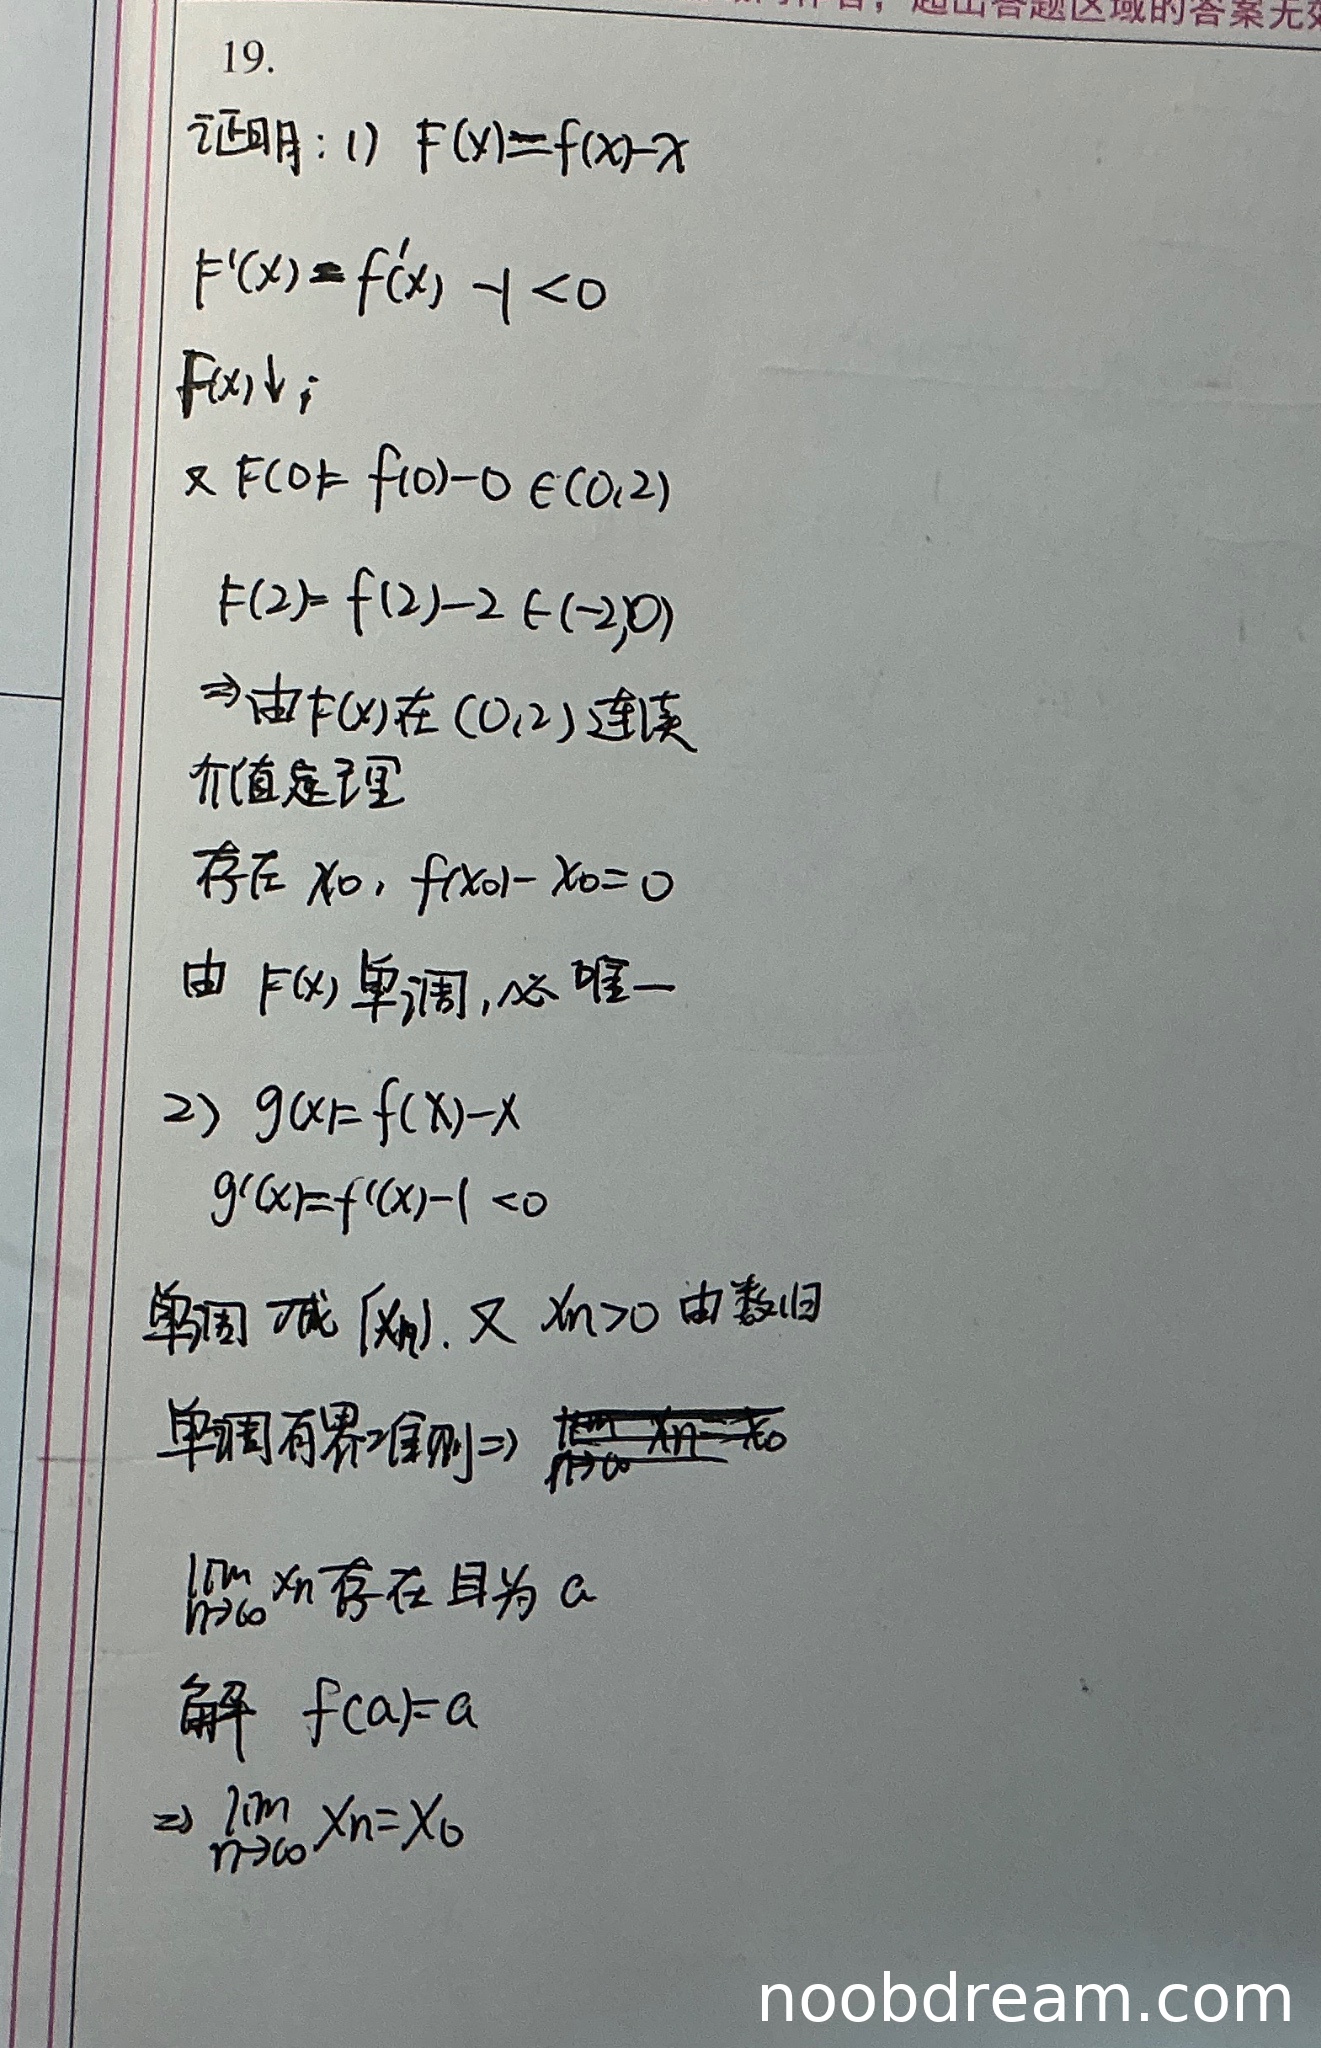 超出答题区域的答案无效
19.
证明: 1) F(x)=f(x)-x
F'(x)=f'(x) -1<0
F(x)↓;
又 F(0)= f(0)-0 ∈(0,2)
F(2)= f(2)-2 ∈(-2,0)
⇒由F(x)在(0,2)连续
介值定理
存在 x0, f(x0)-x0=0
由 F(x) 单调,必唯一
2) g(x)= f(x)-x
g'(x)=f'(x)-1 <0
单调减 {xn}. 又 xn>0 由数归
单调有界准则⇒
lim n→∞ xn存在且为 a
解 f(a)=a
⇒ lim n→∞ xn=x0
noobdream.com